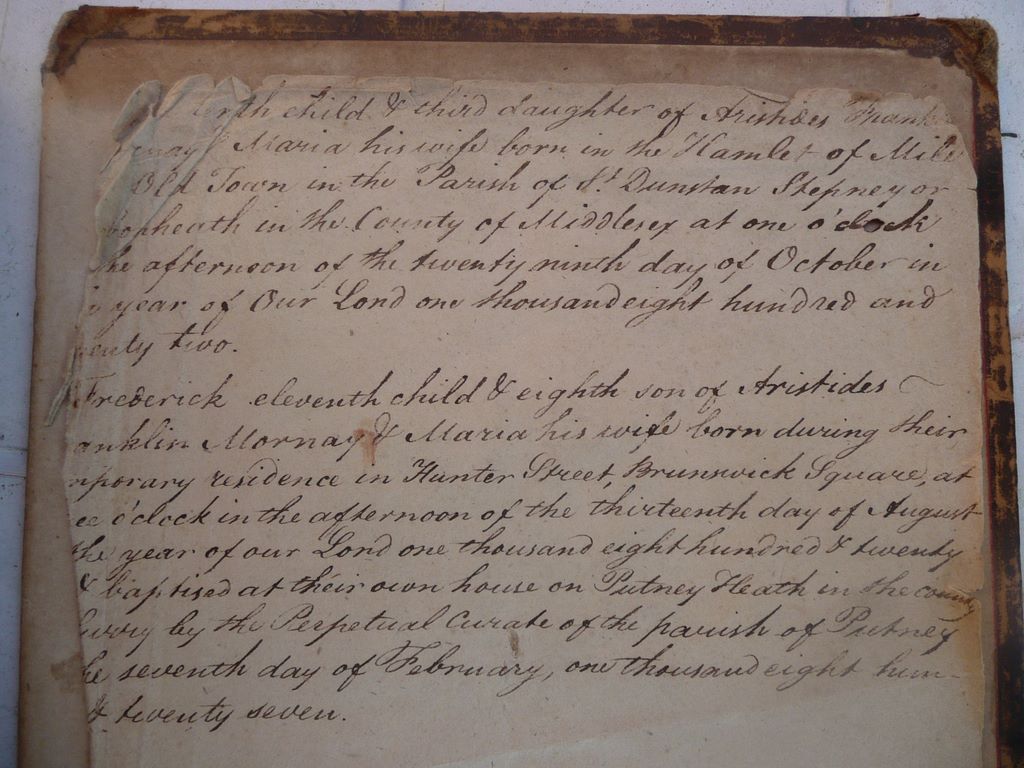 child & third daughter of Aristides Frank
Maria his wife born in the Hamlet of Mile
Old Town in the Parish of St Dunstan Stepney or
in the County of Middlesex at one o'clock
the afternoon of the twenty ninth day of October in
year of Our Lord one thousand eight hundred and
enty two.
Frederick eleventh child & eighth son of Aristides
anklin Mornay & Maria his wife born during their
mporary residence in Hunter Street, Brunswick Square, at
ee o'clock in the afternoon of the thirteenth day of August
the year of our Lord one thousand eight hundred & twenty
& baptised at their own house on Putney Heath in the county
urry by the Perpetual Curate of the parish of Putney
he seventh day of February, one thousand eight hun-
& twenty seven.